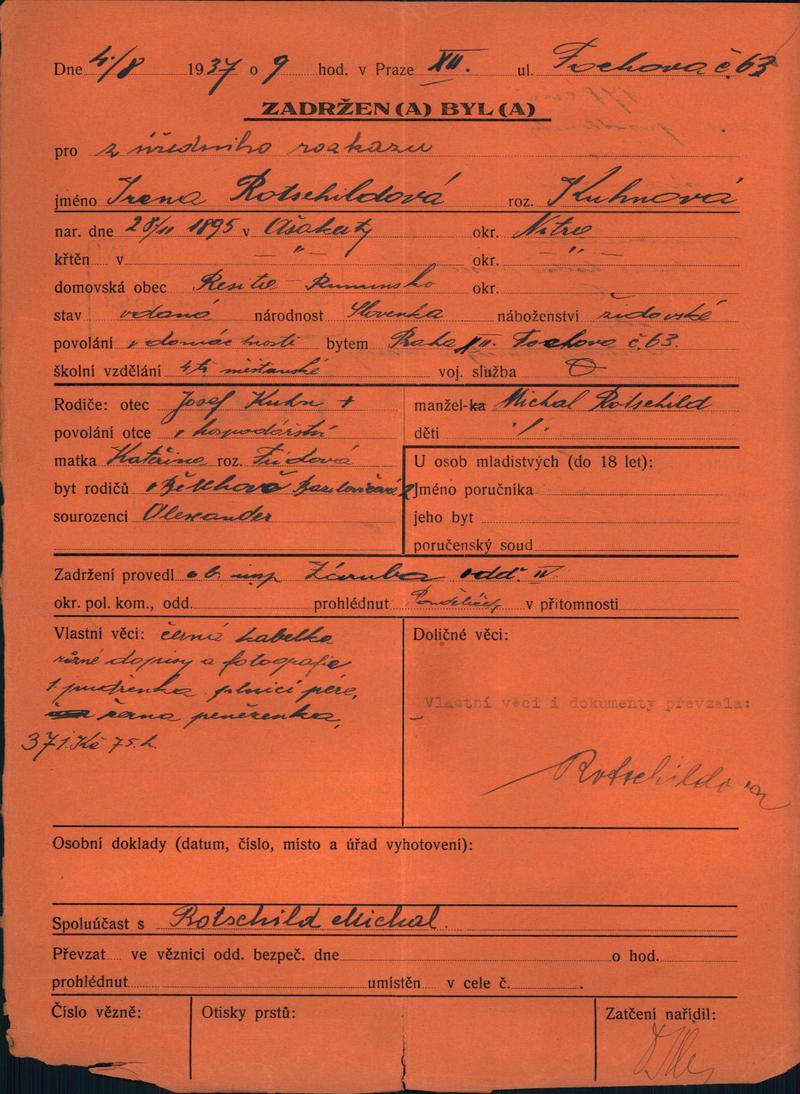 Dne 4/8 1937 o 9 hod. v Praze XII. ul. Fochova č. 63
ZADRŽEN(A) BYL(A)
pro z úředního rozkazu
jméno Irena Rotschildová roz. Kuhnová
nar. dne 28/11 1895 v Ašakerty okr. Nitra
křtěn v — " — okr. — " —
domovská obec Resita - Rumunsko okr.
stav vdaná národnost Slovenka náboženství židovské
povolání v domácnosti bytem Praha XII. Fochova č. 63.
školní vzdělání 4 tř. měšťanské voj. služba
Rodiče: otec Josef Kuhn +
povolání otce v hospodářství
matka Kateřina roz.
byt rodičů
sourozenci Alexander
manžel-ka Michal Rotschild
děti
U osob mladistvých (do 18 let):
Jméno poručníka
jeho byt
poručenský soud
Zadržení provedl insp Záruba odd. IV
okr. pol. kom., odd. prohlédnut v přítomnosti
Vlastní věci: černá kabelka
různé dopisy a fotografie
1 pudřenka plnící péro,
černá peněženka,
371 Kč 75 h.
Doličné věci:
Vlastní věci i dokumenty převzala:
Rotschildová
Osobní doklady (datum, číslo, místo a úřad vyhotovení):
Spoluúčast s Rotschild Michal.
Převzat ve věznici odd. bezpeč. dne o hod.
prohlédnut umístěn v cele č.
Číslo vězně:
Otisky prstů:
Zatčení nařídil: